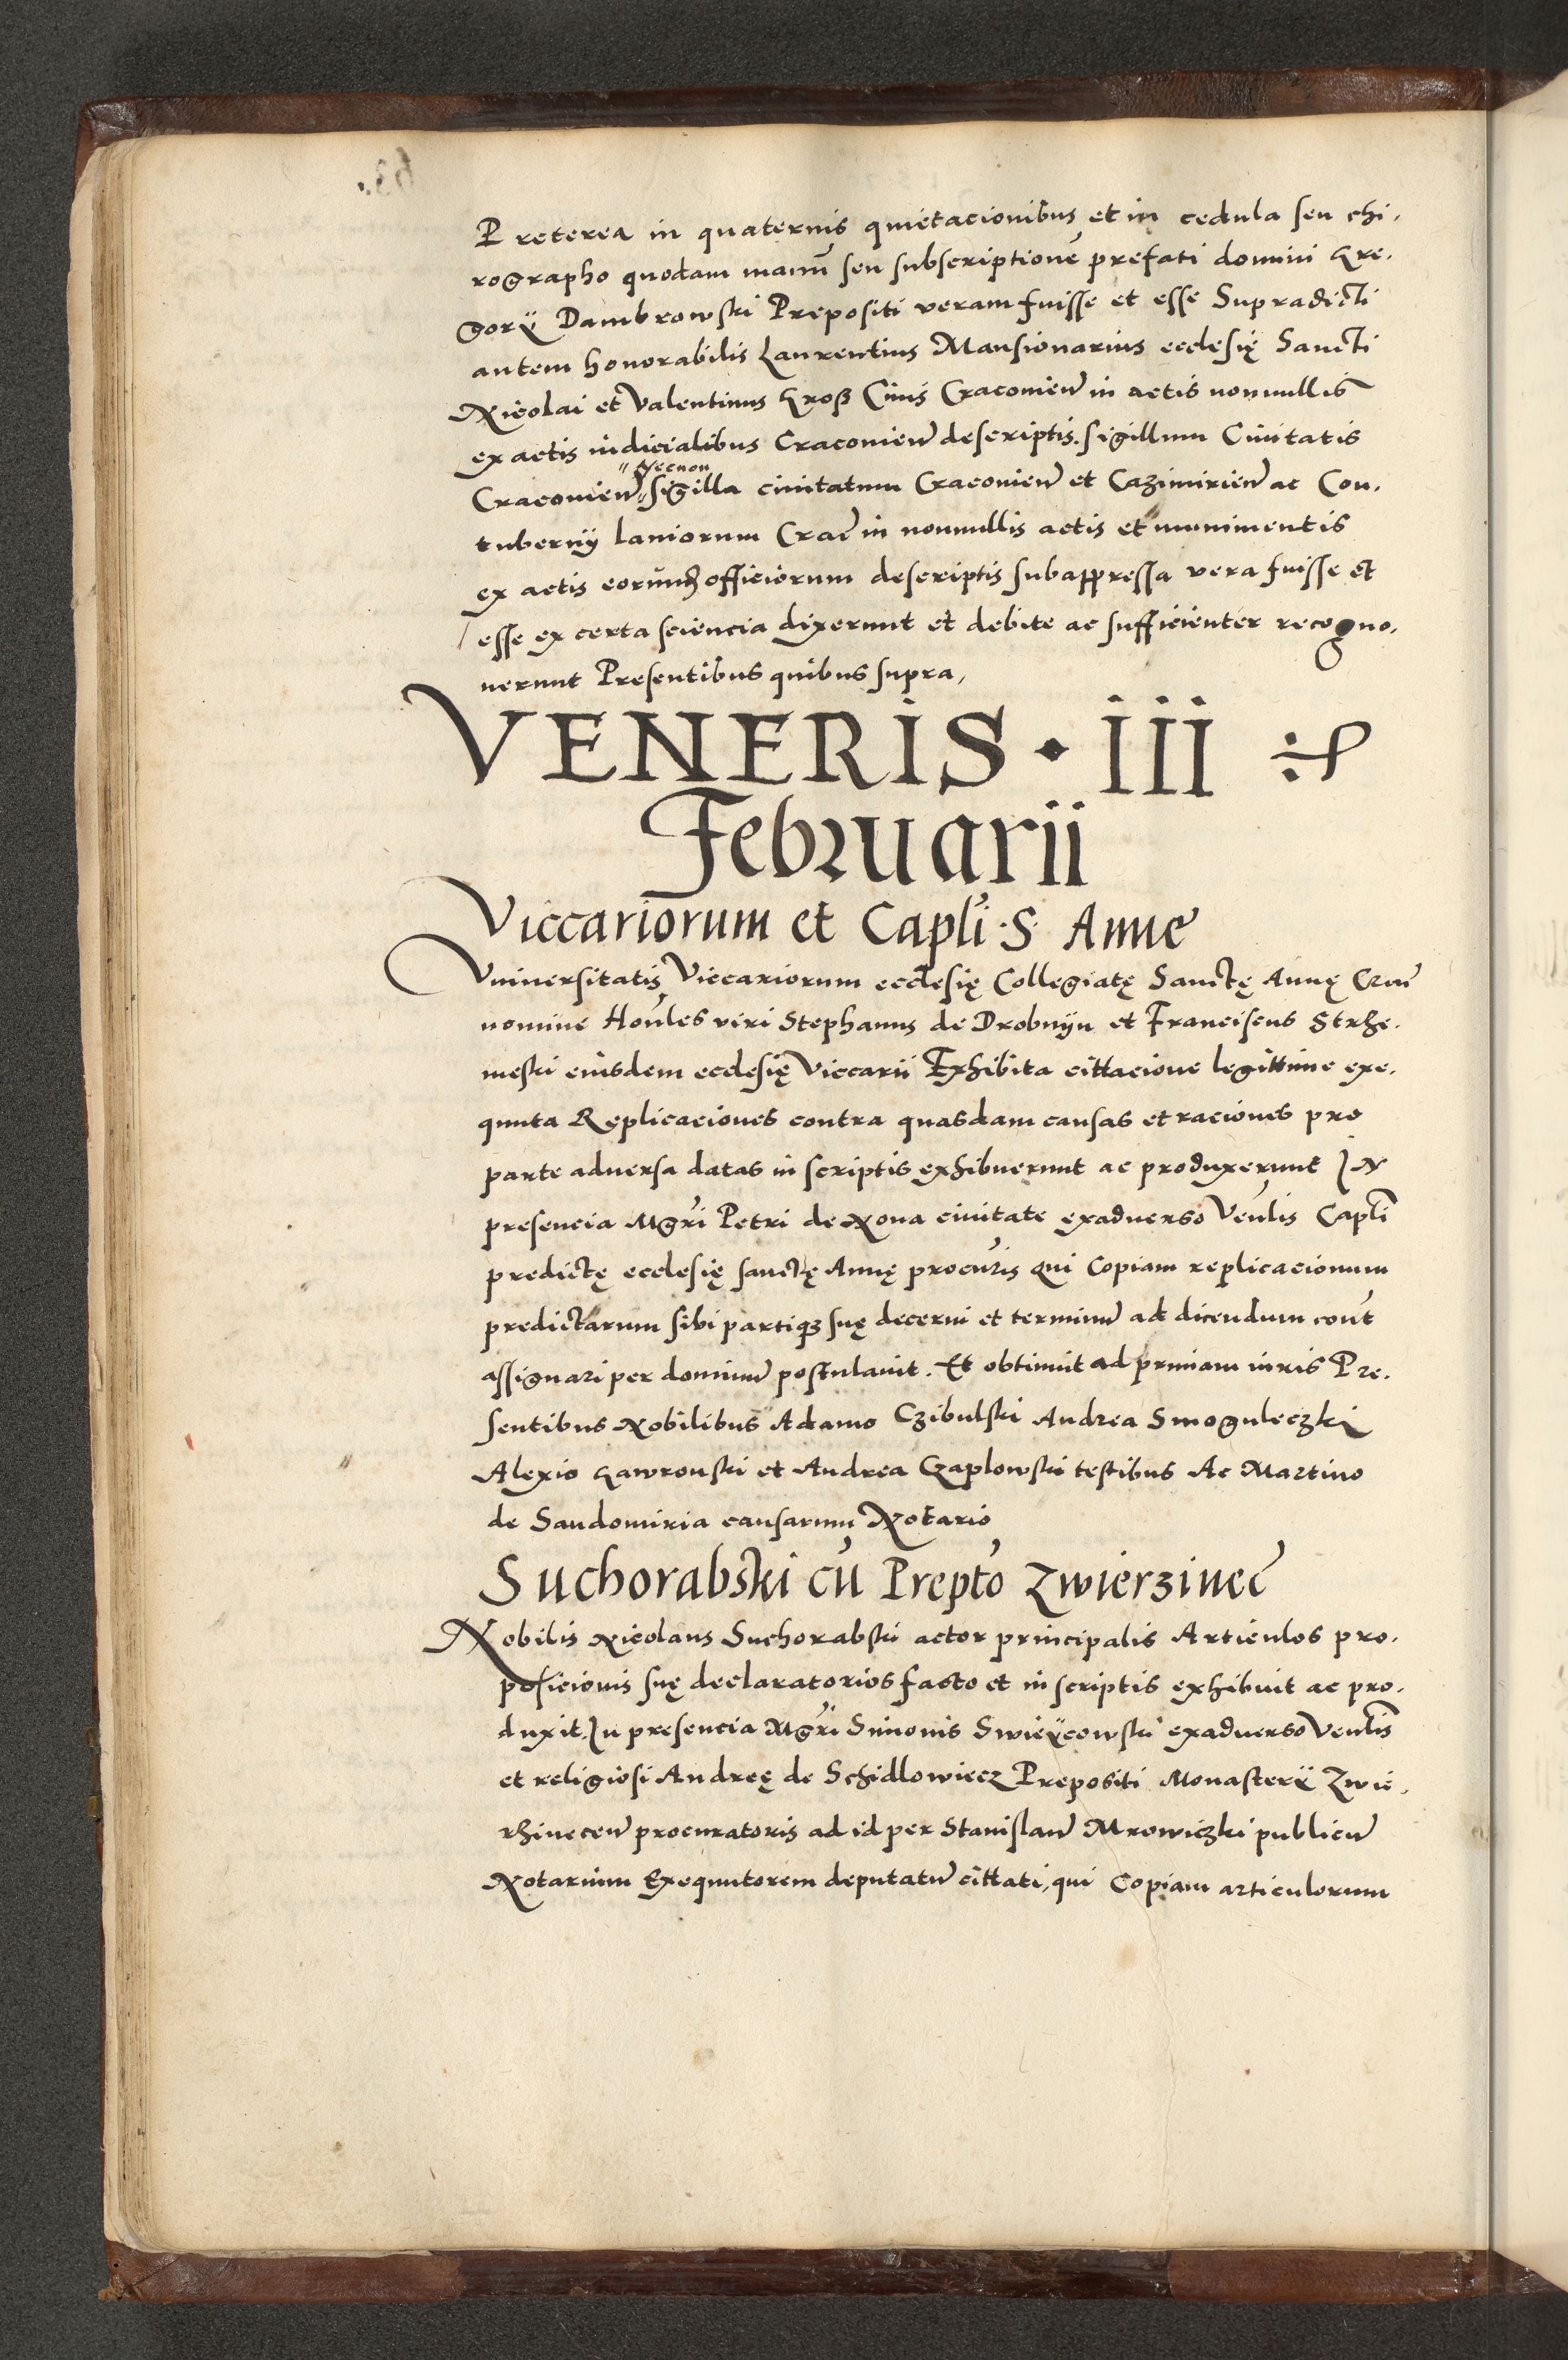 Preterea in quaternis quietacionibus et in cedula seu chi.
rographo quodam manū seu subscriptionē prefati domini Gre.
gorÿ Dambrowski Prepositi veram fuisse et esse Supradicti
autem honorabilis Laurentius Mansionarius ecclesię Sancti
Nicolai et Valentinus Groß Ciuis Cracouień in actis nonnullis
ex actis iudicialibus Cracouień descriptis. sigillum Ciuitatis
Necnon
Cracouień sigilla ciuitatum Cracouień et Cazimirień ac Con.
tubernÿ laniorum Crać in nonnullis actis et munimentis
ex actis eorundē officiorum descriptis subappressa vera fuisse et
esse ex certa sciencia dixerunt et debite ac sufficienter recogno.
uerunt Presentibus quibus supra,
VENERIS · III
Februarii
Viccariorum et Capli · S · Anne
Vniuersitatis Viccariorum ecclesię Collegiatę Sanctę Annę Crać
nomine Honles viri Stephanus de Drobnÿn et Franciscus Strze.
meski eiusdem ecclesię Viccarii Exhibita cittacione legittime exe.
quuta Replicaciones contra quasdam causas et raciones pro
parte adversa datas in scriptis exhibuerunt ac produxerunt IN
presencia Mgri Petri de Noua ciuitate exaduerso Venlis Capli
predictę ecclesię sanctę Annę procuris Qui Copiam replicacionum
predictarum sibi partiqȝ suę decerni et terminū ad dicendum cont
assignari per dominū postulauit. Et obtinuit ad primam iuris Pre.
sentibus Nobilibus Adamo Czibulski Andrea Smoguleczki
Alexio Gawronski et Andrea Czaplowski testibus Ac Martino
de Sandomiria causarum Notario
Suchorabski cū Prepto Zwierzineć
Nobilis Nicolaus Suchorabski actor principalis Articulos pro.
posicionis suę declaratorios facto et in scriptis exhibuit ac pro.
duxit. In presencia Mgri Simonis Swieÿcowski exaduerso Venlis
et religiosi Andreę de Schidlowiecz Prepositi Monasterÿ Zwie.
rhineceń procuratoris ad id per Stanislaū Mrowiczki publicū
Notarium Exequutorem deputatū cittati, qui Copiam articulorum